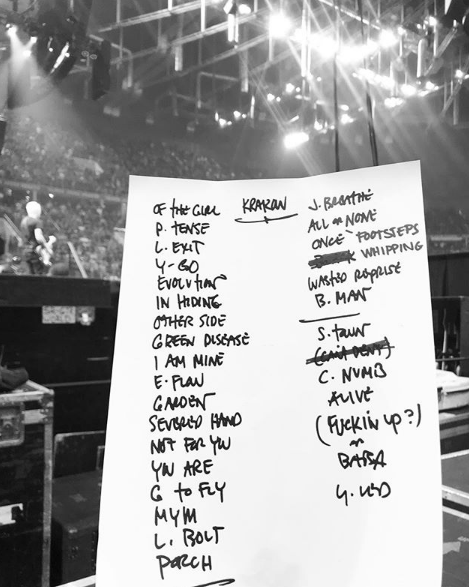 KRAKOW
OF THE GIRL
P. TENSE
L. EXIT
Y-GO
EVOLUTION
IN HIDING
OTHER SIDE
GREEN DISEASE
I AM MINE
E. FLOW
GARDEN
SEVERED HAND
NOT FOR YOU
YOU ARE
G TO FLY
MYM
L. BOLT
PORCH
J. BREATHE
ALL or NONE
ONCE FOOTSTEPS
WHIPPING
WASTED REPRISE
B. MAN
S. TOWN
C. NUMB
ALIVE
(FUCKIN UP?)
or
BABA
Y. LED